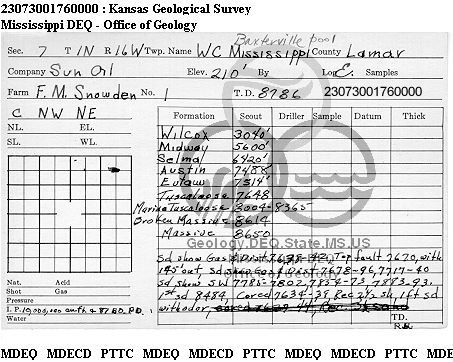 23073001760000 : Kansas Geological Survey
Mississippi DEQ - Office of Geology
Baxterville pool
Sec. 7 T 1N R 16W Twp. Name WC Mississippi County Lamar
Company Sun Oil Elev. 210' By Log E. Samples
Farm F.M. Snowden No. 1 T.D. 8786 23073001760000
C NW NE
Formation Scout Driller Sample Datum Thick
NL. EL.
SL. WL.
Wilcox 3040'
Midway 5600'
Selma 6420'
Austin 7488'
Eutaw 7314'
Tuscaloosa 7648
Marine Tuscaloosa 8004-8365
Broken Massive 8614
Massive 8650
Geology.DEQ.State.MS.US
Sd show Gas & Dist 7638-42, Top fault 7670, with
145' out, Sd show Gas & Dist 7678-96, 7717-40
Sd show SW 7785-7802, 7854-73, 7883-93.
1st sd 8484, Cored 7634-39, Rec 2½ sh, 1 ft sd
with odor,
Nat. Acid
Shot Gas
Pressure
I.P.
Water
T.D.
MDEQ MDECD PTTC MDEQ MDECD PTTC MDEQ MDECD PTTC MDE